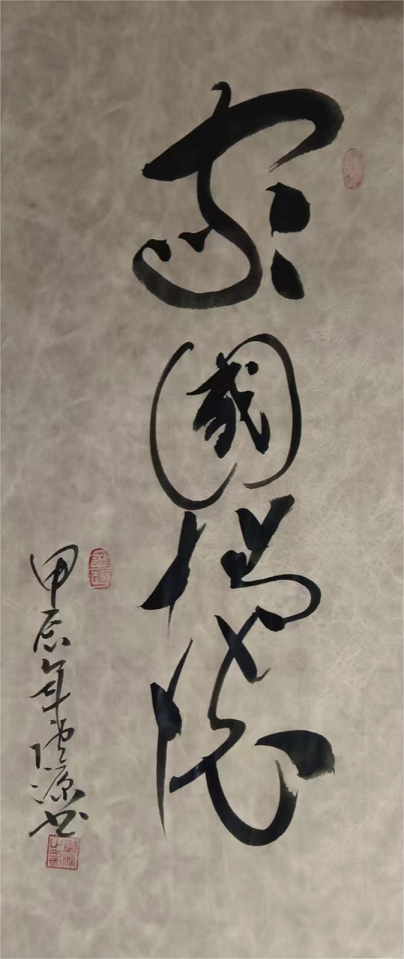 家國情懷
甲辰年源书